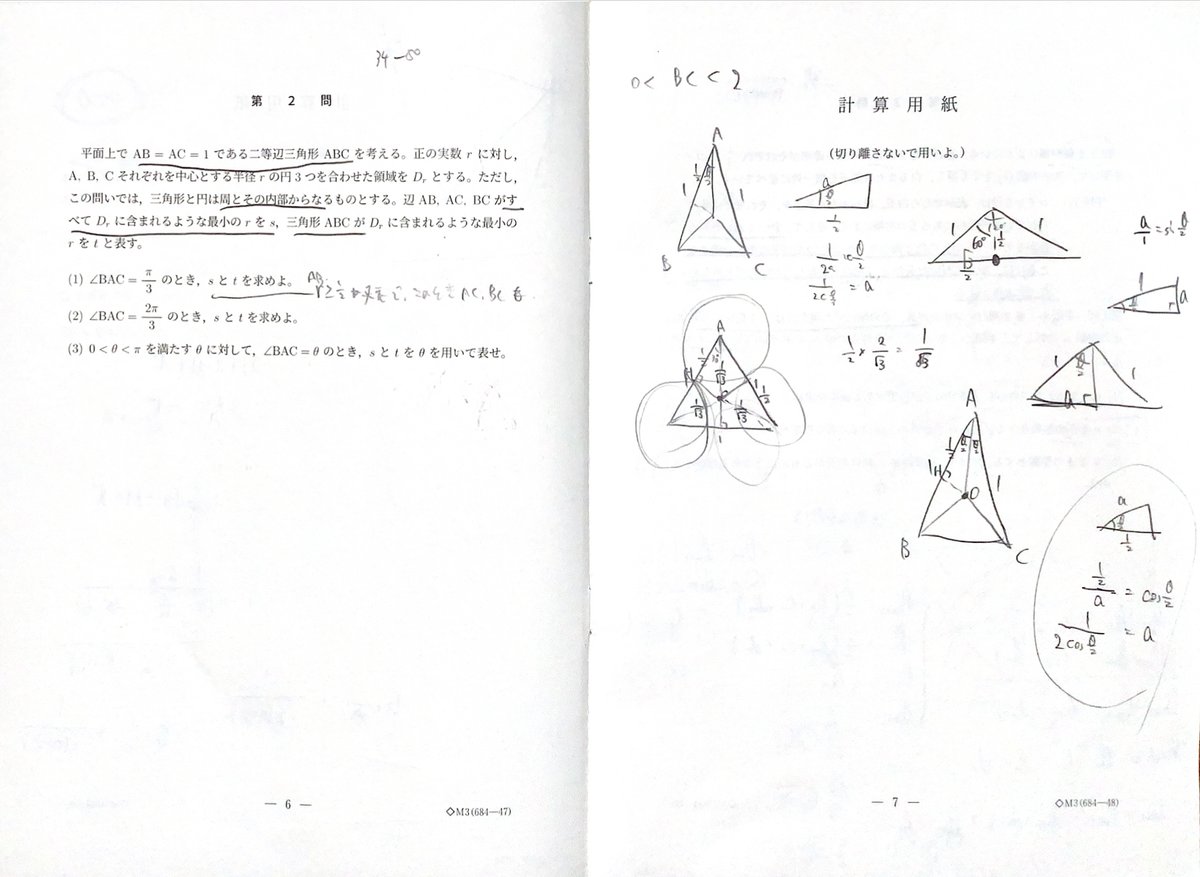 34-50
第 2 問
平面上で AB = AC = 1 である二等辺三角形 ABC を考える。正の実数 r に対し,
A, B, C それぞれを中心とする半径 r の円 3 つを合わせた領域を Dr とする。ただし,
この問いでは, 三角形と円は周とその内部からなるものとする。辺 AB, AC, BC がす
べて Dr に含まれるような最小の r を s, 三角形 ABC が Dr に含まれるような最小の
r を t と表す。
(1) ∠BAC = π/3 のとき, s と t を求めよ。
AB
(2) ∠BAC = 2π/3 のとき, s と t を求めよ。
(3) 0 < θ < π を満たす θ に対して, ∠BAC = θ のとき, s と t を θ を用いて表せ。
— 6 —
◇M3(684—47)
0 < BC < 2
計 算 用 紙
(切り離さないで用いよ。)
A
1/2
θ/2
1
1
B
C
a
θ/2
1/2
1
1
60°
1/2
√3/2
a/1 = sin θ/2
1
θ/2
r
a
1/2 × 2/√3 = 1/√3
A
1/2
30°
1/√3
1/2
H
1/√3
1/√3
1
1
θ/2
1
a
r
A
1/2
1
H
O
1
B
C
a
θ/2
1/2
1/2/a = cos θ/2
1/2cos θ/2 = a
— 7 —
◇M3(684—48)